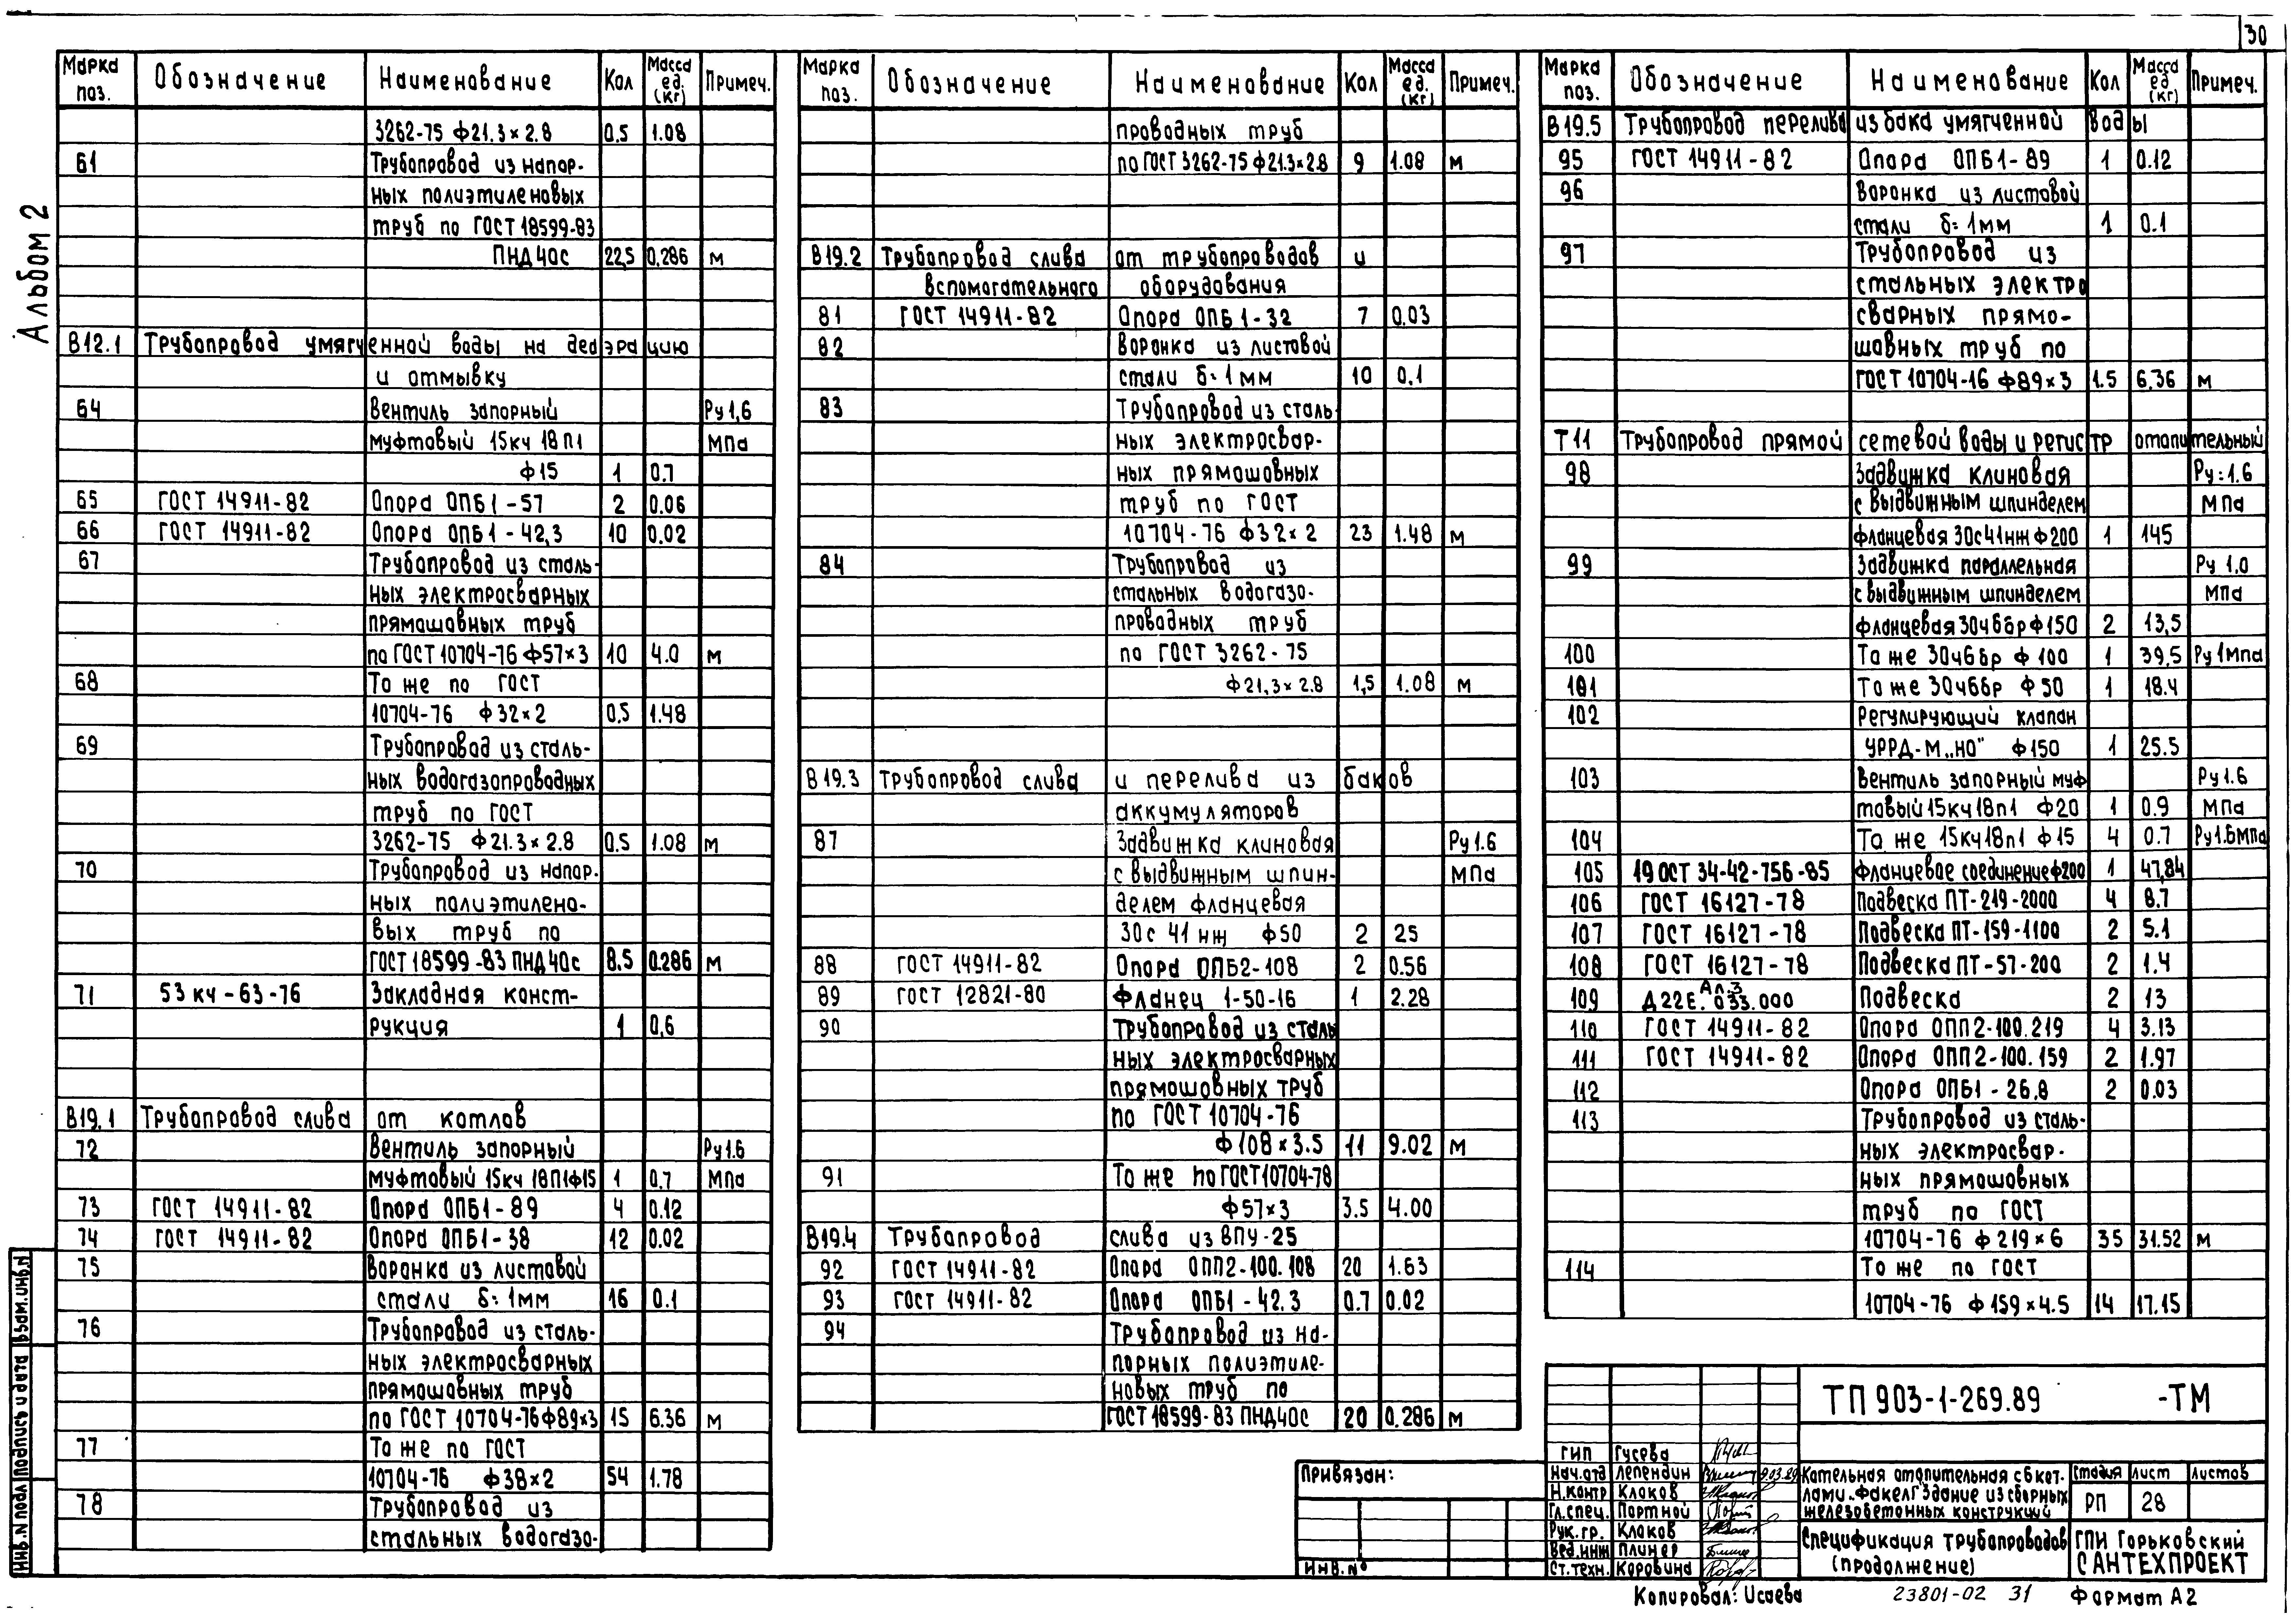 30
Альбом 2
Марка поз. Обозначение Наименование Кол Масса ед. (кг) Примеч.
3262-75 ф21.3×2.8 0.5 1.08
61 Трубопровод из напор-
ных полиэтиленовых
труб по ГОСТ 18599-83
ПНД40с 22,5 0,286 м
В12.1 Трубопровод умягченной воды на деаэрацию
и отмывку
64 Вентиль запорный Ру1,6
муфтовый 15кч 18п1 МПа
ф15 1 0.7
65 ГОСТ 14911-82 Опора ОПБ1-57 2 0.06
66 ГОСТ 14911-82 Опора ОПБ1-42,3 10 0.02
67 Трубопровод из сталь-
ных электросварных
прямошовных труб
по ГОСТ 10704-76 ф57×3 10 4.0 м
68 То же по ГОСТ
10704-76 ф32×2 0.5 1.48
69 Трубопровод из сталь-
ных водогазопроводных
труб по ГОСТ
3262-75 ф21.3×2.8 0.5 1.08 м
70 Трубопровод из напор-
ных полиэтилено-
вых труб по
ГОСТ 18599-83 ПНД40с 8.5 0.286 м
71 53кч-63-76 Закладная конст-
рукция 1 0,6
В19.1 Трубопровод слива от котлов
72 Вентиль запорный Ру1.6
муфтовый 15кч 18п1ф15 1 0,7 МПа
73 ГОСТ 14911-82 Опора ОПБ1-89 4 0.12
74 ГОСТ 14911-82 Опора ОПБ1-38 12 0.02
75 Воронка из листовой
стали δ=1мм 16 0.1
76 Трубопровод из сталь-
ных электросварных
прямошовных труб
по ГОСТ 10704-76ф89×3 15 6.36 м
77 То же по ГОСТ
10704-76 ф38×2 54 1.78
78 Трубопровод из
стальных водогазо-
Марка поз. Обозначение Наименование Кол Масса ед. (кг) Примеч.
проводных труб
по ГОСТ 3262-75 ф21.3×2.8 9 1.08 м
В19.2 Трубопровод слива от трубопроводов и
вспомогательного оборудования
81 ГОСТ 14911-82 Опора ОПБ1-32 7 0.03
82 Воронка из листовой
стали δ=1мм 10 0,1
83 Трубопровод из сталь-
ных электросвар-
ных прямошовных
труб по ГОСТ
10704-76 ф32×2 23 1.48 м
84 Трубопровод из
стальных водогазо-
проводных труб
по ГОСТ 3262-75
ф21,3×2.8 1,5 1.08 м
В19.3 Трубопровод слива и перелива из баков
аккумуляторов
87 Задвижка клиновая Ру1.6
с выдвижным шпин- МПа
делем фланцевая
30с 41нж ф50 2 25
88 ГОСТ 14911-82 Опора ОПБ2-108 2 0.56
89 ГОСТ 12821-80 Фланец 1-50-16 1 2.28
90 Трубопровод из сталь
ных электросварных
прямошовных труб
по ГОСТ 10704-76
ф108×3.5 11 9.02 м
91 То же по ГОСТ10704-78
ф57×3 3.5 4.00
В19.4 Трубопровод слива из ВПУ-25
92 ГОСТ 14911-82 Опора ОПП2-100.108 20 1.63
93 ГОСТ 14911-82 Опора ОПБ1-42.3 0.7 0.02
94 Трубопровод из на-
порных полиэтиле-
новых труб по
ГОСТ 18599-83 ПНД40с 20 0.286 м
Марка поз. Обозначение Наименование Кол Масса ед. (кг) Примеч.
В19.5 Трубопровод перелива из бака умягченной воды
95 ГОСТ 14911-82 Опора ОПБ1-89 1 0.12
96 Воронка из листовой
стали δ=1мм 1 0.1
97 Трубопровод из
стальных электро
сварных прямо-
шовных труб по
ГОСТ 10704-16 ф89×3 1.5 6.36 м
Т11 Трубопровод прямой сетевой воды и регистр отопительный
98 Задвижка клиновая Ру=1.6
с выдвижным шпинделем МПа
фланцевая 30с41нж ф200 1 145
99 Задвижка параллельная Ру 1.0
с выдвижным шпинделем МПа
фланцевая 30ч6бр ф150 2 13,5
100 То же 30ч6бр ф100 1 39,5 Ру1МПа
101 То же 30ч6бр ф50 1 18.4
102 Регулирующий клапан
УРРД-М„НО" ф150 1 25.5
103 Вентиль запорный муф Ру1.6
товый 15кч18п1 ф20 1 0.9 МПа
104 То же 15кч18п1 ф15 4 0.7 Ру1.6МПа
105 19 ОСТ 34-42-756-85 Фланцевое соединение ф200 1 47,84
106 ГОСТ 16127-78 Подвеска ПТ-219-2000 4 8.7
107 ГОСТ 16127-78 Подвеска ПТ-159-1100 2 5.1
108 ГОСТ 16127-78 Подвеска ПТ-57-200 2 1.4
109 Д22Е.033.000 Ал.3 Подвеска 2 13
110 ГОСТ 14911-82 Опора ОПП2-100.219 4 3.13
111 ГОСТ 14911-82 Опора ОПП2-100.159 2 1.97
112 Опора ОПБ1-26.8 2 0.03
113 Трубопровод из сталь-
ных электросвар-
ных прямошовных
труб по ГОСТ
10704-76 ф219×6 35 31.52 м
114 То же по ГОСТ
10704-76 ф159×4.5 14 17.15
ТП 903-1-269.89 -ТМ
Привязан:
Инв.№
ГИП Гусева
Нач.отд Лепендин 9.03.89
Н.контр Клоков
Гл.спец. Портной
Рук.гр. Клоков
Вед.инж Плинер
Ст.техн. Коровина
Котельная отопительная с 6 кот-
лами „Факел" Здание из сборных
железобетонных конструкций
Стадия Лист Листов
РП 28
Спецификация трубопроводов
(продолжение)
ГПИ Горьковский
САНТЕХПРОЕКТ
Копировал: Исаева 23801-02 31 Формат А2
Инв.N подл Подпись и дата Взам.инв.N